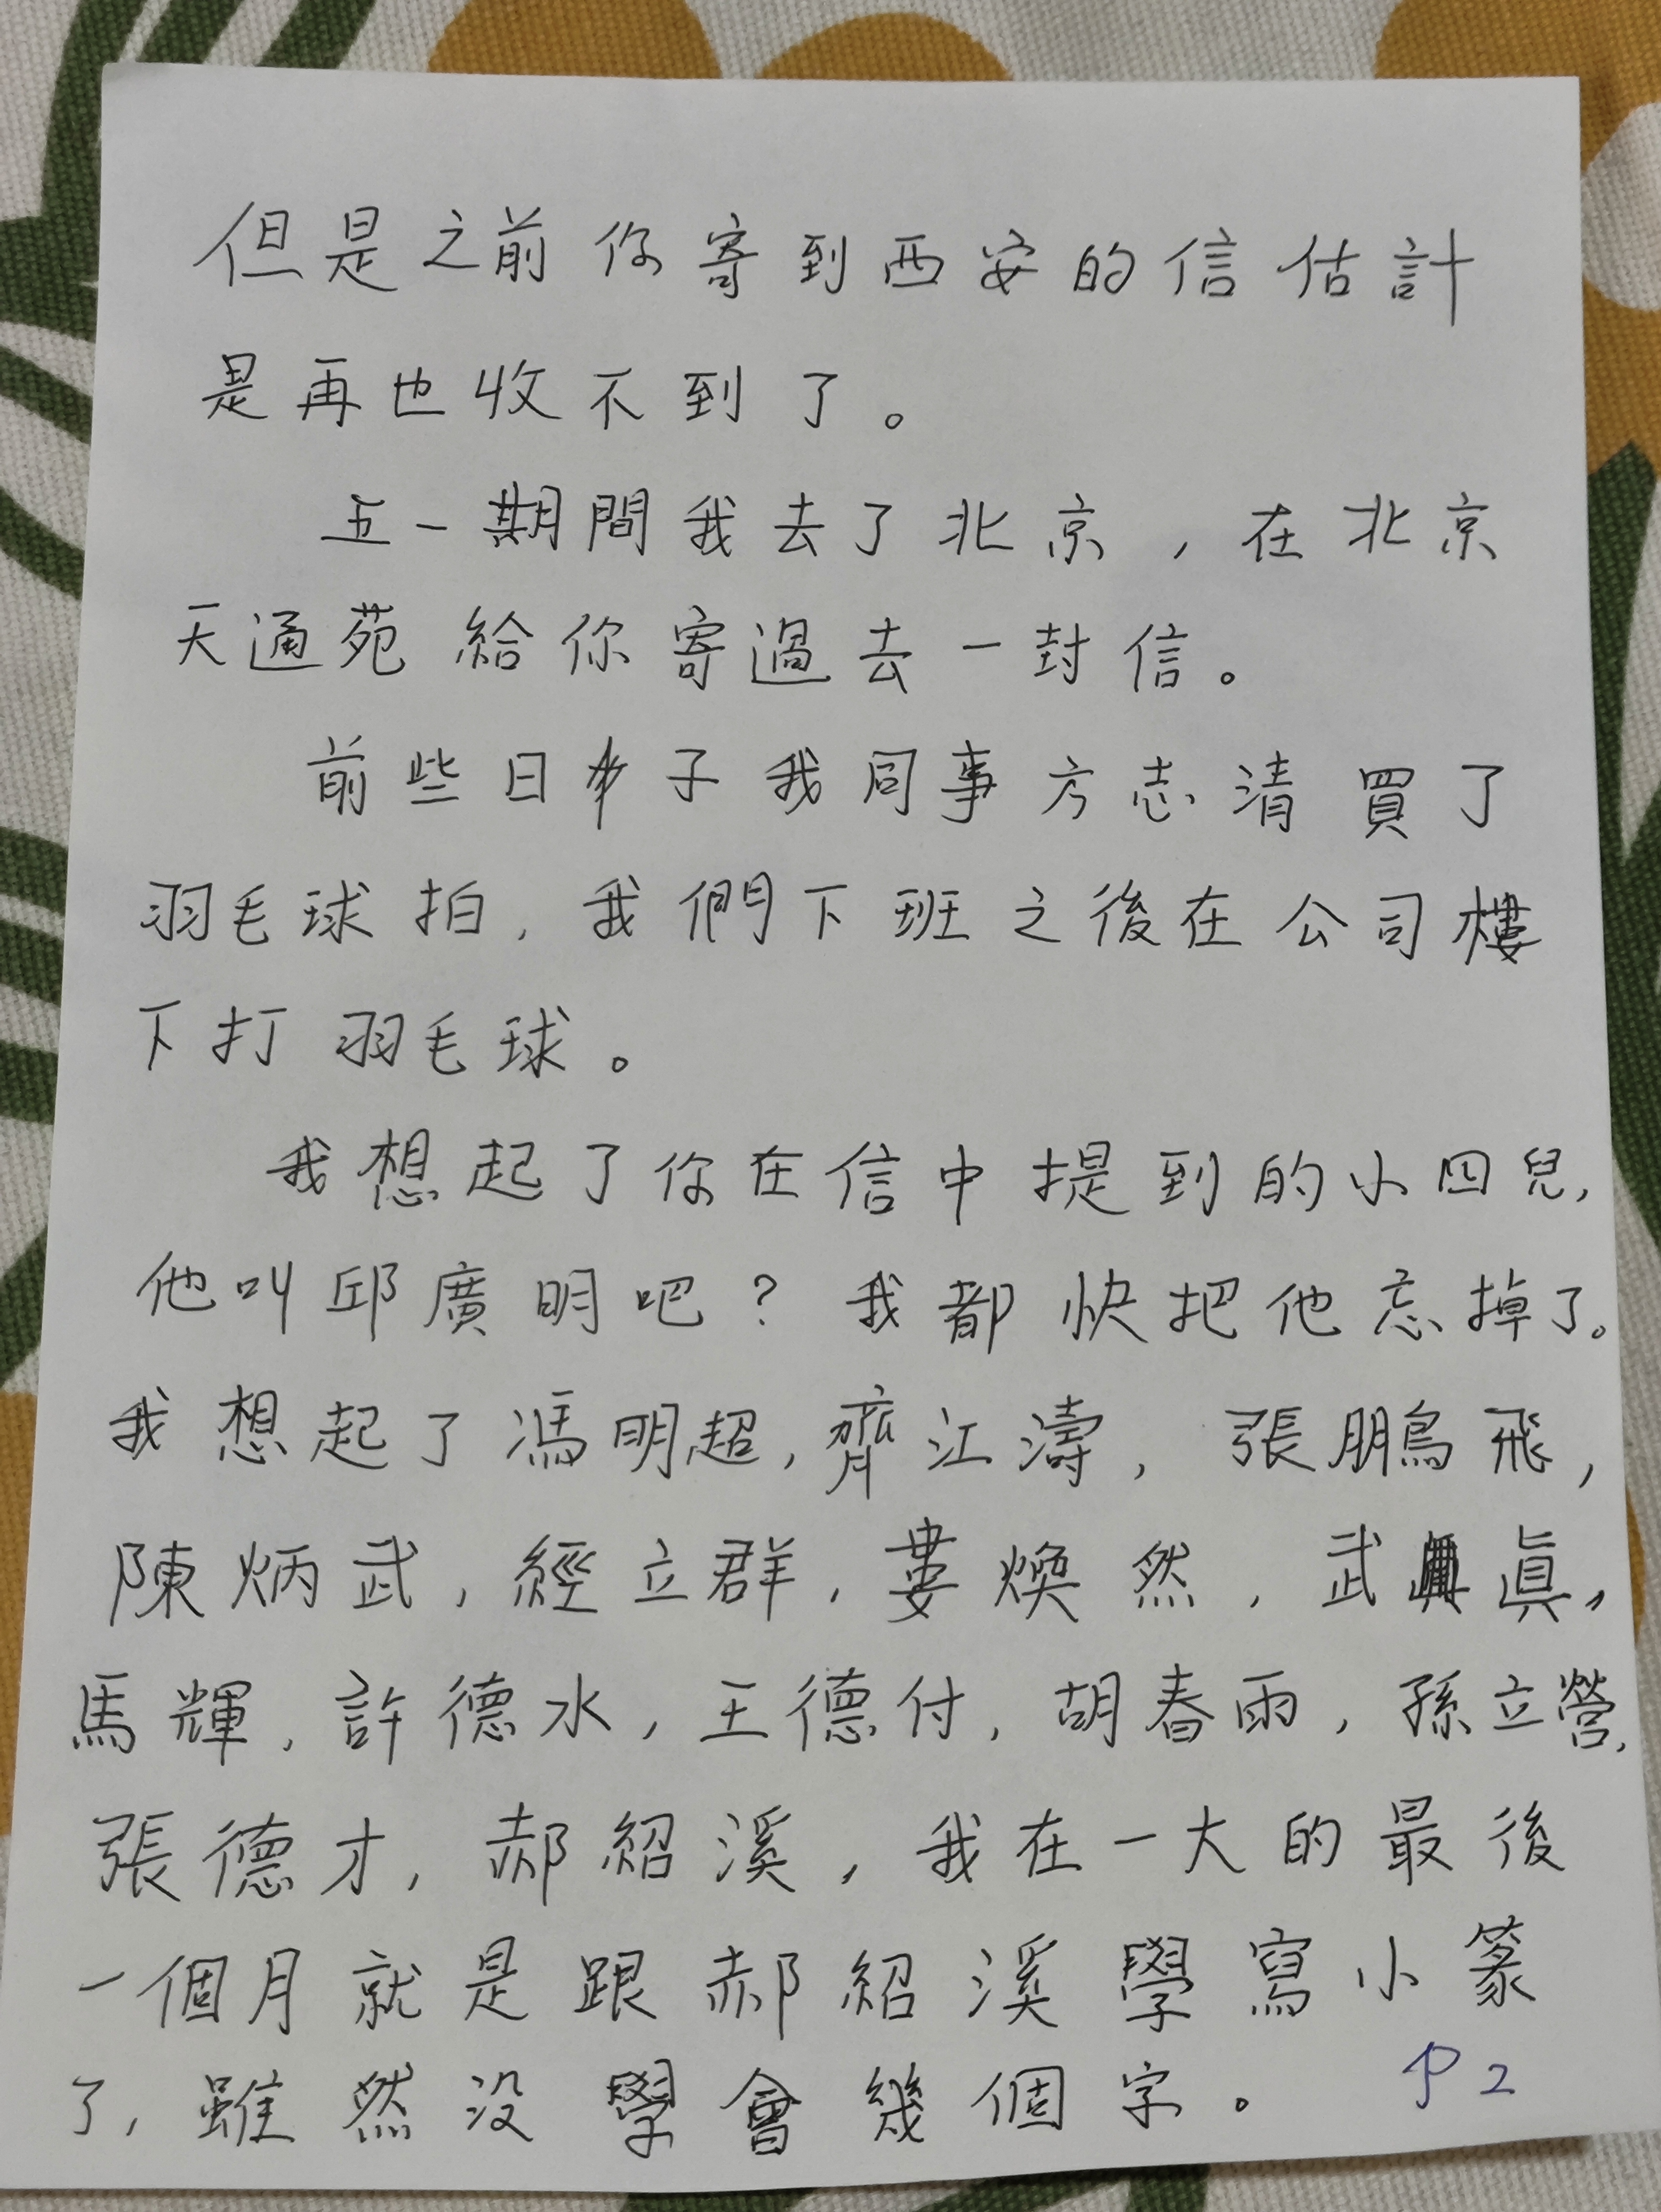 但是之前你寄到西安的信估計
是再也收不到了。
五一期間我去了北京，在北京
天通苑給你寄過去一封信。
前些日子我同事方志清買了
羽毛球拍，我們下班之後在公司樓
下打羽毛球。
我想起了你在信中提到的小四兒，
他叫邱廣明吧？我都快把他忘掉了。
我想起了馮明超，齊江濤，張鵬飛，
陳炳武，經立群，婁煥然，武眞，
馬輝，許德水，王德付，胡春雨，孫立營，
張德才，郝紹溪，我在一大的最後
一個月就是跟郝紹溪學寫小篆
了，雖然没學會幾個字。
P2